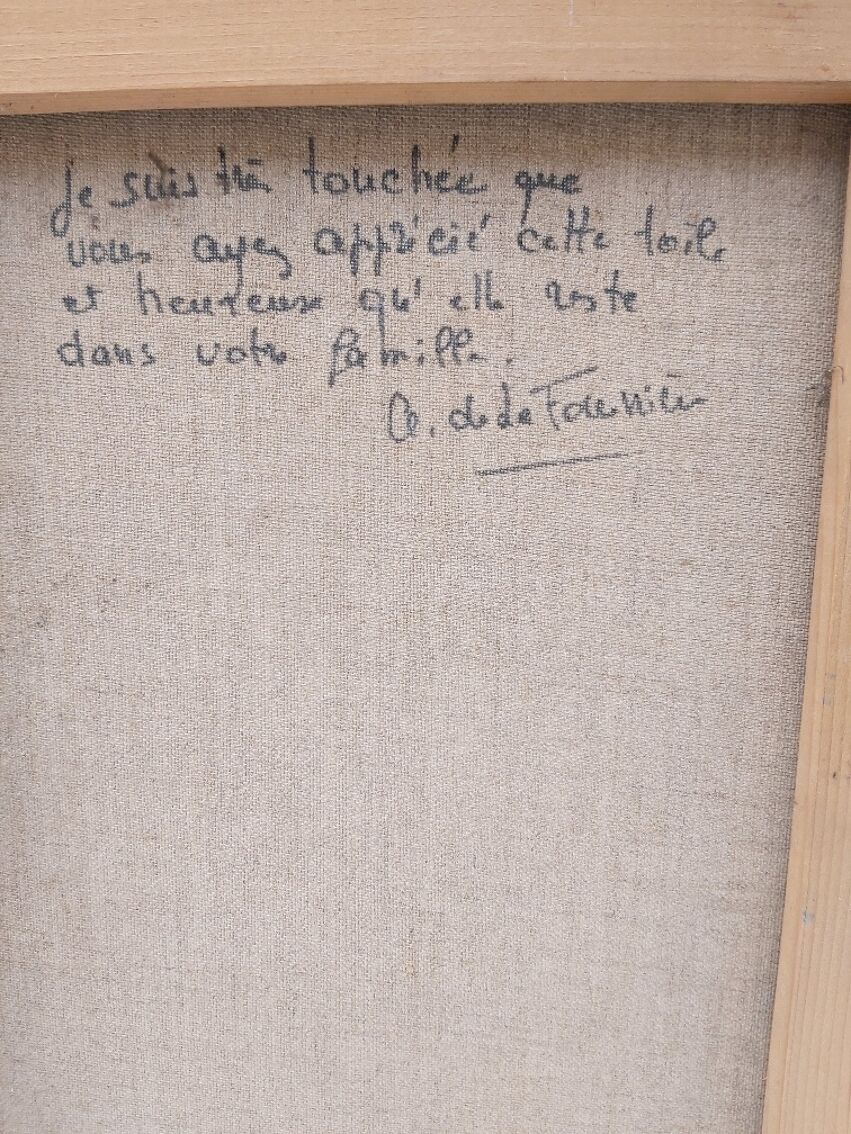 Je suis très touchée que
vous ayez apprécié cette toile
et heureuse qu'elle reste
dans votre famille.
de la Fournière